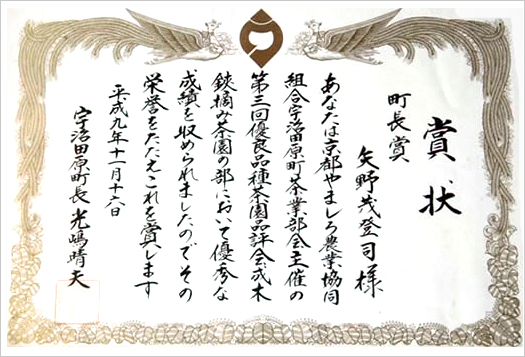 賞状
町長賞
矢野茂登司様
あなたは京都やましろ農業協同
組合宇治田原町茶業部会主催の
第三回優良品種茶園品評会成木
鋏摘み茶園の部において優秀な
成績を収められましたのでその
栄誉をたたえこれを賞します
平成九年十一月十六日
宇治田原町長 光嶋晴夫